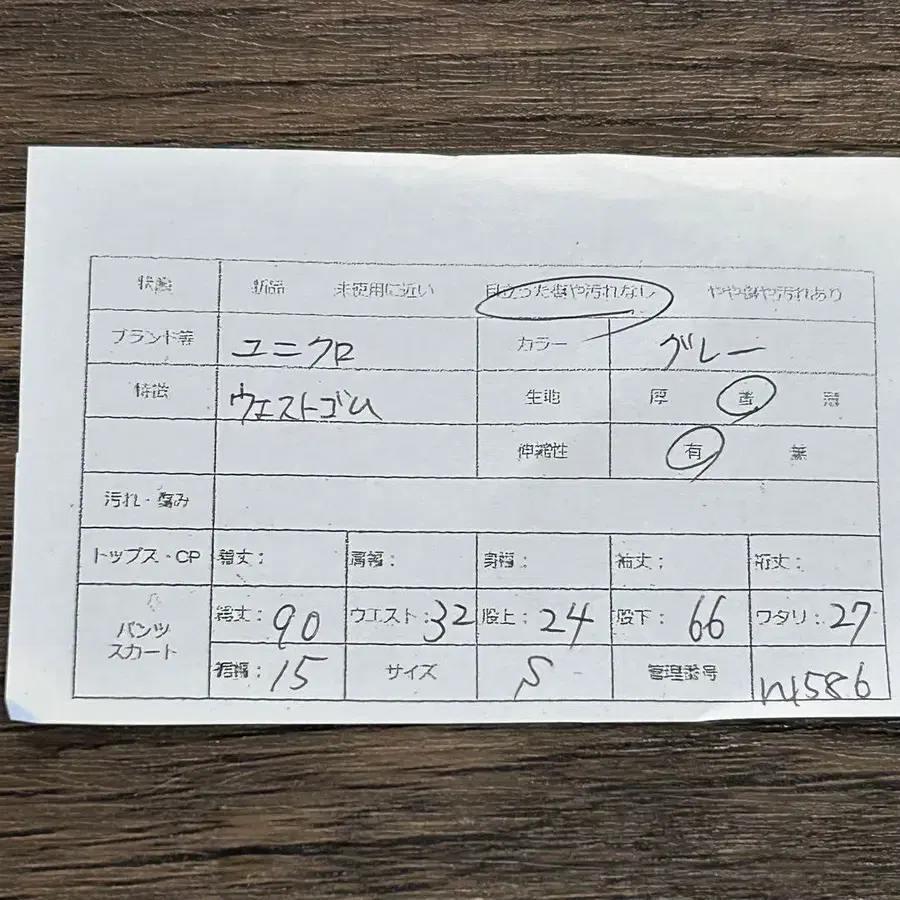 状態 新品 未使用に近い 目立った傷や汚れなし やや傷や汚れあり
ブランド等 ユニクロ カラー グレー
特徴 ウエストゴム 生地 厚 普 薄
伸縮性 有 無
汚れ・傷み
トップス・CP 着丈: 肩幅: 身幅: 袖丈: 裄丈:
パンツ スカート
総丈:90 ウエスト:32 股上:24 股下:66 ワタリ:27
裾幅:15 サイズ S 管理番号